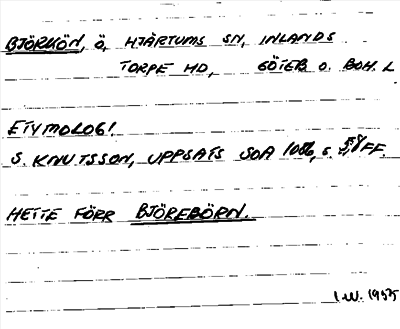 BJÖRKÖN, Ö, HJÄRTUMS SN, INLANDS
TORPE HD, GÖTEB O. BOH. L
ETYMOLOGI
S. KNUTSSON, UPPSATS SOA 1086, s. 58 FF.
HETTE FÖRR BJÖREBÖRN.
I.W. 1975